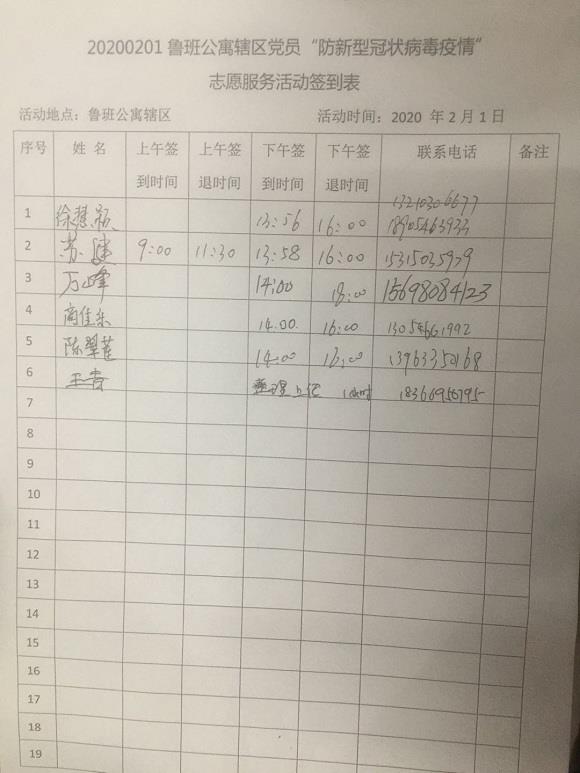 20200201 鲁班公寓辖区党员“防新型冠状病毒疫情”
志愿服务活动签到表
活动地点：鲁班公寓辖区 活动时间：2020 年 2 月 1 日
序号 姓 名 上午签到时间 上午签退时间 下午签到时间 下午签退时间 联系电话 备注
13210306677
1 徐慧 13:56 16:00 18905463933
2 苏 9:00 11:30 13:58 16:00 15315035979
3 万峰 14:00 18:00 15698084123
4 商佳乐 14.00. 16:00 13054661992
5 陈翠莲 14:00 16:00 13963350168
6 王青 整理上记 1小时 18366950795
7
8
9
10
11
12
13
14
15
16
17
18
19